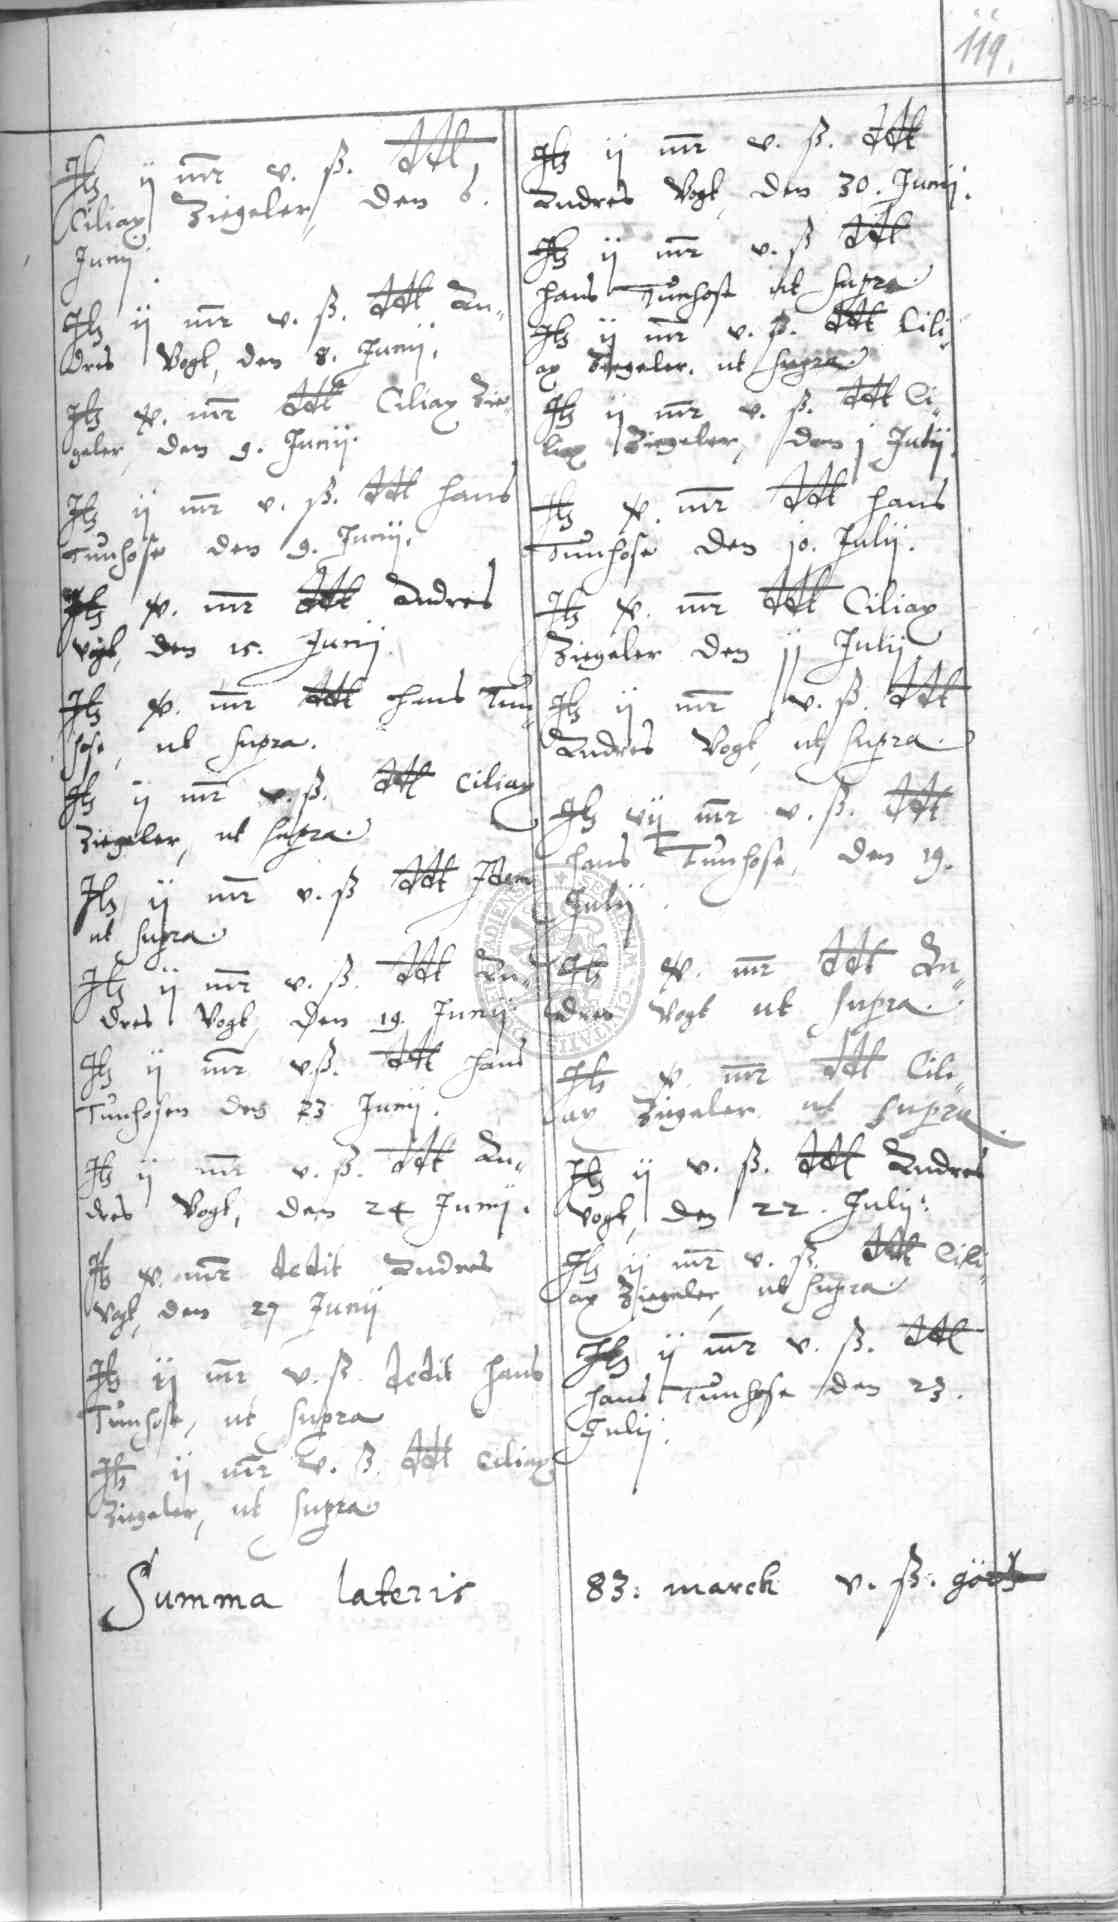 119.
Itz ij mr v. ß. ddt
Ciliax Ziegeler den 6.
Junij
Itz ij mr v. ß. ddt An„
dres Vogt, den 8. Junij.
Itz v. mr ddt Ciliax Zie„
geler, den 9. Junij.
Itz ij mr v. ß. ddt Hans
Tunhose den 9. Junij.
Itz v. mr ddt Andres
Vogt, den 15. Junij.
Itz v. mr ddt Hans Tun„
hose, ut supra.
Itz ij mr v. ß. ddt Ciliax
Ziegeler, ut supra.
Itz ij mr v. ß ddt Idem
ut supra.
Itz ij mr v. ß. ddt An„
dres Vogt, den 19. Junij
Itz ij mr v. ß. ddt Hans
Tunhosen den 23 Junij.
Itz ij mr v. ß. ddt An„
dres Vogt, den 24 Junij.
Itz v. mr dedit Andres
Vogt, den 29 Junij
Itz ij mr v. ß. dedit Hans
Tunhose, ut supra
Itz ij mr v. ß. ddt Ciliax
Ziegeler, ut supra.
Itz ij mr v. ß. ddt
Andres Vogt, den 30. Junij.
Itz ij mr v. ß ddt
Hans Tunhose ut supra.
Itz ij mr v. ß. ddt Cili„
ax Ziegeler. ut supra
Itz ij mr v. ß. ddt Ci„
liax Ziegeler, den j Julij.
Itz v. mr ddt Hans
Tunhose den jo. Julij.
Itz v. mr ddt Ciliax
Ziegeler den jj Julij
Itz ij mr v. ß. ddt
Andres Vogt, ut supra.
Itz vij mr v. ß. ddt
Hans Tunhose, den 19.
Julij.
Itz v. mr ddt An„
dres Vogt ut supra.
Itz v. mr ddt Cili„
ax Ziegeler ut supra.
Itz ij v. ß. ddt Andres
Vogt, den 22. Julij.
Itz ij mr v. ß. ddt Cili„
ax Ziegeler, ut supra.
Itz ij mr v. ß. ddt
Hans Tunhose den 23.
Julij.
Summa lateris 83. marck v. ß. görl